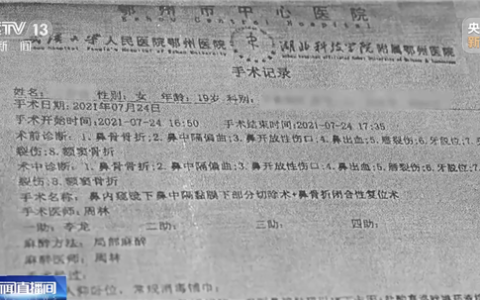 CCTV 13
新闻
央
鄂州市中心医院
Ezhou Central Hospital
人民医院鄂州医院
湖北科技学院附属鄂州医院
手术记录
姓名: 性别: 女 年龄: 19岁 科别:
手术日期:2021年07月24日
手术开始时间:2021-07-24 16:50 手术结束时间:2021-07-24 17:35
术前诊断: 1.鼻骨骨折;2.鼻中隔偏曲;3.鼻开放性伤口;4.鼻出血;5.唇裂伤;6.牙脱位;7.
裂伤;8.额窦骨折
术中诊断: 1.鼻骨骨折;2.鼻中隔偏曲;3.鼻开放性伤口;4.鼻出血;5.唇裂伤;6.牙脱位;7.
裂伤;8.额窦骨折
手术名称: 鼻内窥镜下鼻中隔黏膜下部分切除术+鼻骨骨折闭合性复位术
手术医师: 周林
一助: 李龙 二助: 三助: 四助:
麻醉方法: 局部麻醉
麻醉医师: 周林
手术经过:
卧位, 常规消毒铺巾
新闻直播间